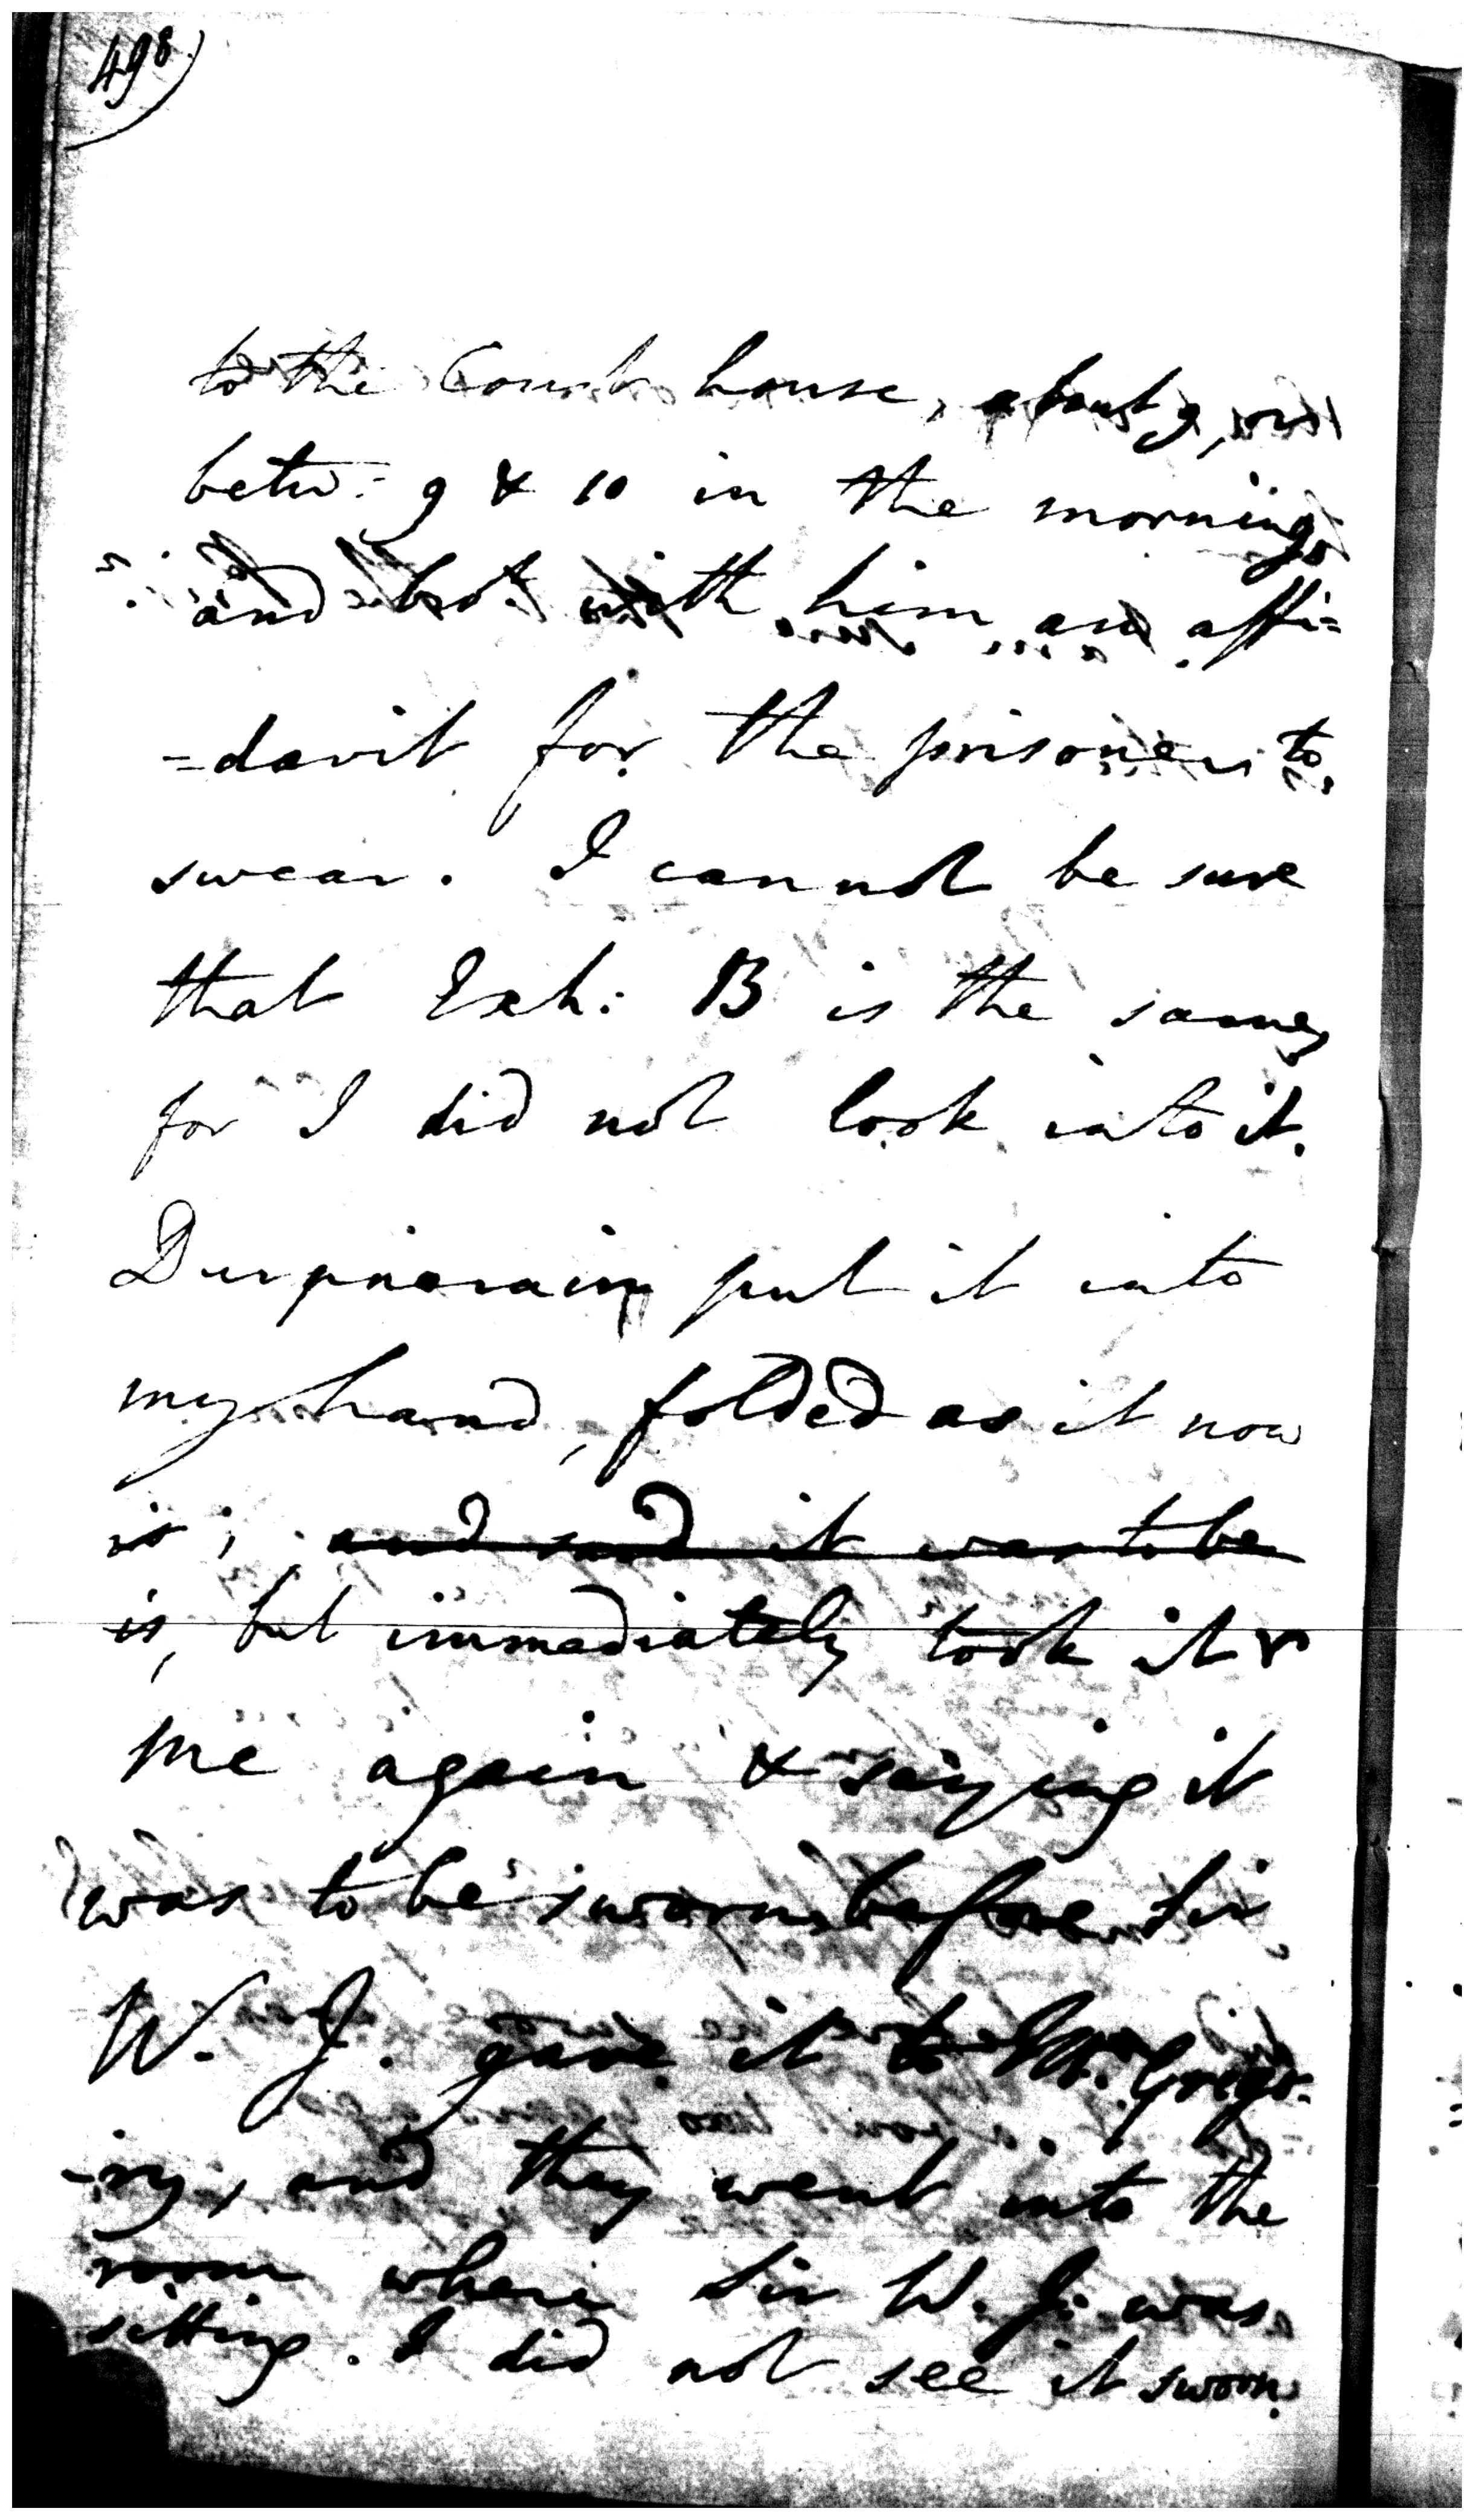 498)
to the Court house, about 9, or
betw: 9 & 10 in the morning,
and bro.t with him an affi=
=davit for the prisoner to
swear. I cannot be sure
that Exh: B is the same,
for I did not look into it.
put it into
my hand, folded as it now
is; and said it was to be
is, but immediately took it
me again & saying it
was to be sworn before Sir
W. J. gave it to Mr. Grego-
-ry, and they went into the
room where Sir W. J. was
sitting. I did not see it sworn.